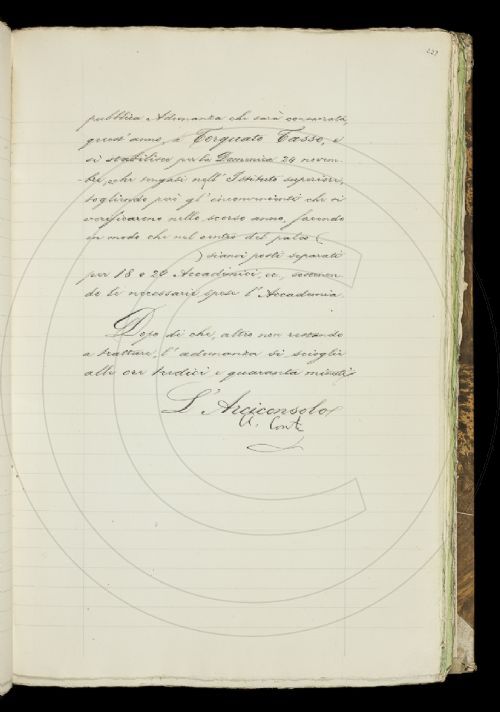 227
pubblica Adunanza che sarà consacrata,
quest'anno, a Torquato Tasso, e
si stabilisce per la Domenica 24 novem-
-bre, che tengasi nell'Istituto superiore,
togliendo però gl'inconvenienti che si
verificarono nello scorso anno, facendo
in modo che nel centro del palco (
) sianvi posti separati
per 18 o 20 Accademici, ec, sostenen-
do le necessarie spese l'Accademia.
Dopo di che, altro non restando
a trattare, l'adunanza si scioglie
alle ore tredici e quaranta minuti.
L'Arciconsolo
A. Conti